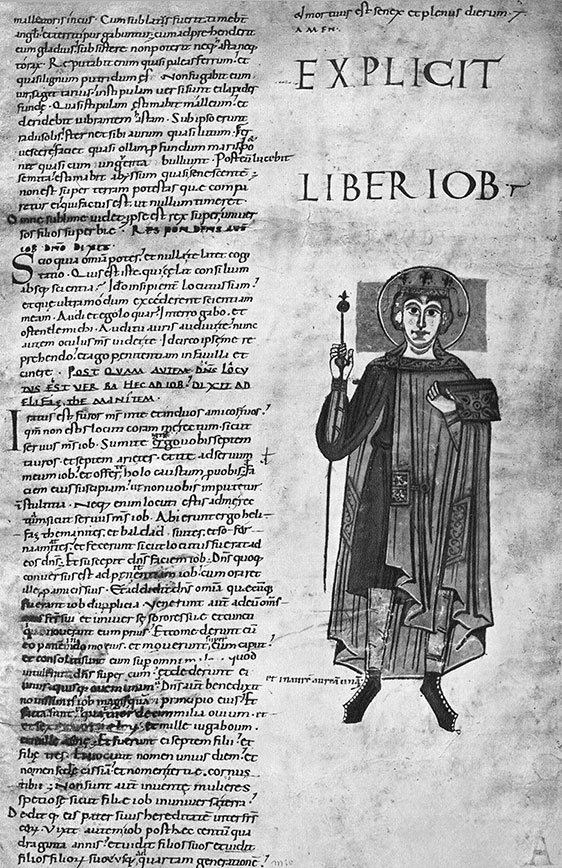 malleatoris incus. Cum sublatus fuerit timebt
angli et territi purgabuntur. cum adprehenderit
eum gladius subsistere non poterit neq; asta neq;
torax. Reputabit enim quasi paleas ferrum et
quasi lignum putridum es. Non fugabit eum
vir sagittarius. in stipulam versi sunt ei lapides
funde. Quasi stipulam estimabit malleum et
deridebit vibrantem astam. Sub ipso erunt
radii solis. sternet sibi aurum quasi lutum.
fervescere faciet quasi ollam profundum maris. po
net quasi cum ungenta bulliunt. Post eum lucebit
semita estimabit abyssum quasi senescente
non est super terram potestas que compa
retur ei qui factus est ut nullum timeret
Omne sublime videt ipse est rex super univer
sos filios superbie. RESPONDENS AUT
IOB DNO DIXIT
Scio quia omnia potes et nulla te latet cogi
tatio. Quis est iste qui celat consilium
absq; scientia. Ideo insipienter locutus sum
et que ultra modum excederent scientiam
meam. Audi et ego loquar interrogabo te et
ostende michi. Auditu auris audivi te nunc
autem oculus ms videt te. Idcirco ipse me re
prehendo et ago penitentiam in favilla et
cinere. POST QUAM AUTEM DNS LOCU
TUS EST VERBA HEC AD IOB. DIXIT AD
ELIFAZ THEMANITEM.
Iratus est furor ms in te et in duos amicos tuos
qm non estis locuti coram me rectum sicut
servus ms iob. Sumite ergo vobis septem
tauros et septem arietes et ite ad servum
meum iob et offerte holocaustum pro vobis
faciem eius suscipiam ut non vobis imputetur
stultitia. Neq; enim locuti estis ad me recte
sicut servus ms iob. Abierunt ergo heli
faz themanites et baldad suites et sofar
naamites et fecerunt sicut locutus fuerat ad
eos dns. Et suscepit dns faciem iob. Dns quoq;
conversus est ad penitentiam iob cum oraret
ille pro amicis suis. Et addidit dns omnia quecumq;
fuerant iob duplicia. Venerunt aut ad eum oms
fratres sui et universe sorores sue et cuncti
qui noverant eum prius. Et comederunt cu
eo panem in domo eius et moverunt super eum caput
et consolati sunt eum super omni quod
intulerat dns super eum. et dederunt ei
unusquisq; ovem unam Dns aut benedixit
novissimis iob magis quam principio eius. Et
facta sunt quattuordecim milia ovium et
et sex et mille iuga boum
et mille asine. Et fuerunt ei septem filii et
filie tres. Et vocavit nomen unius diem et
nomen secunde cassiam et nomen tertie cornus
tibii. Non sunt aut invente mulieres
speciose sicut filie iob in universa terra.
Dedit q; eis pater suus hereditatem inter frs
earu. Vixit autem iob post hec centu qua
draginta annis et vidit filios suos et
filios filioru suoru usq; ad quartam generatione
et mortuus est senex et plenus dierum.
AMEN.
EXPLICIT
LIBER IOB
et inaurem auream unam